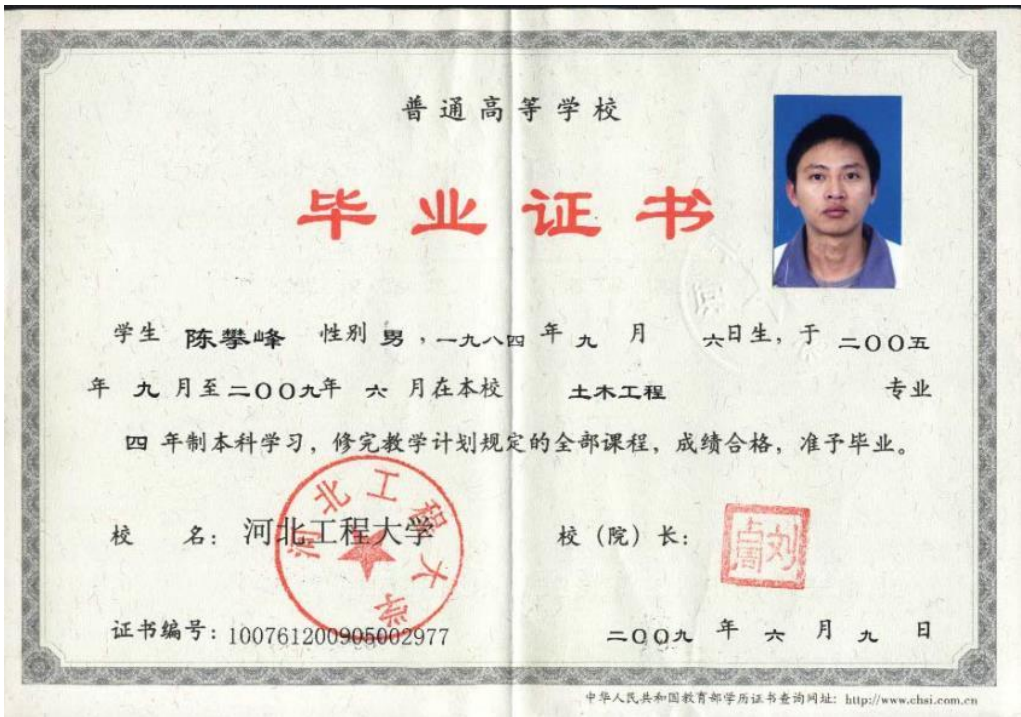 普通高等学校
毕业证书
学生 陈攀峰 性别 男，一九八四 年 九 月 六日生，于 二00五
年 九 月至二00九年 六 月在本校 土木工程 专业
四 年制本科学习，修完教学计划规定的全部课程，成绩合格，准予毕业。
校 名：河北工程大学
河北工程大学
校（院）长：
证书编号：100761200905002977
二00九 年 六 月 九 日
中华人民共和国教育部学历证书查询网址：http://www.chsi.com.cn